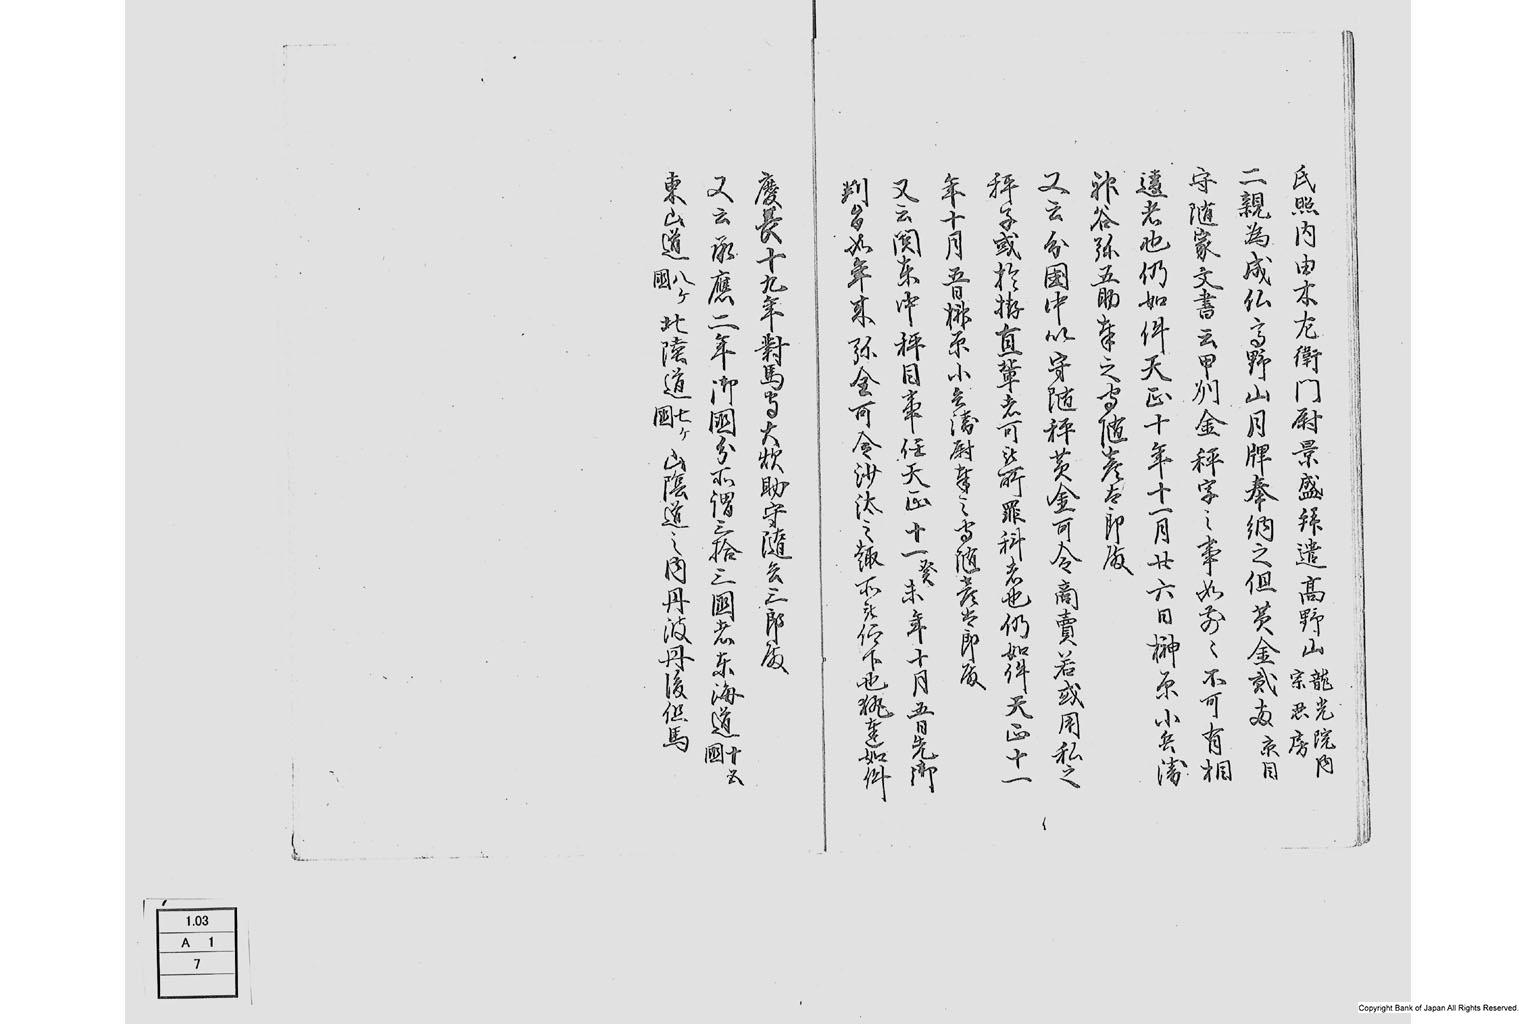 氏照内由木左衛門尉景盛拝遣高野山龍光院内宗忍房
二親為成仏高野山月牌奉納之但黄金貳両京目
守随家文書云甲州金秤字之事如前々不可有相
違者也仍如件天正十年十一月廿六日榊原小兵衛
神谷弥五助奉之守随彦太郎殿
又云分國中以守随秤黄金可令商賣若或用私之
秤子或於拵直輩者可被所罪科者也仍如件天正十一
年十月五日榊原小兵衛尉奉之守随彦太郎殿
又云関東中秤目事任天正十一癸未年十月五日先御
判旨如年来弥全可令沙汰之趣所被仰下也執達如件
慶長十九年對馬守大炊助守隨兵三郎殿
又云承應二年御國分所謂三拾三國者東海道十五國
東山道八ヶ國北陸道七ヶ國山陰道之内丹波丹後但馬
1.03
A 1
7
Copyright Bank of Japan All Rights Reserved.